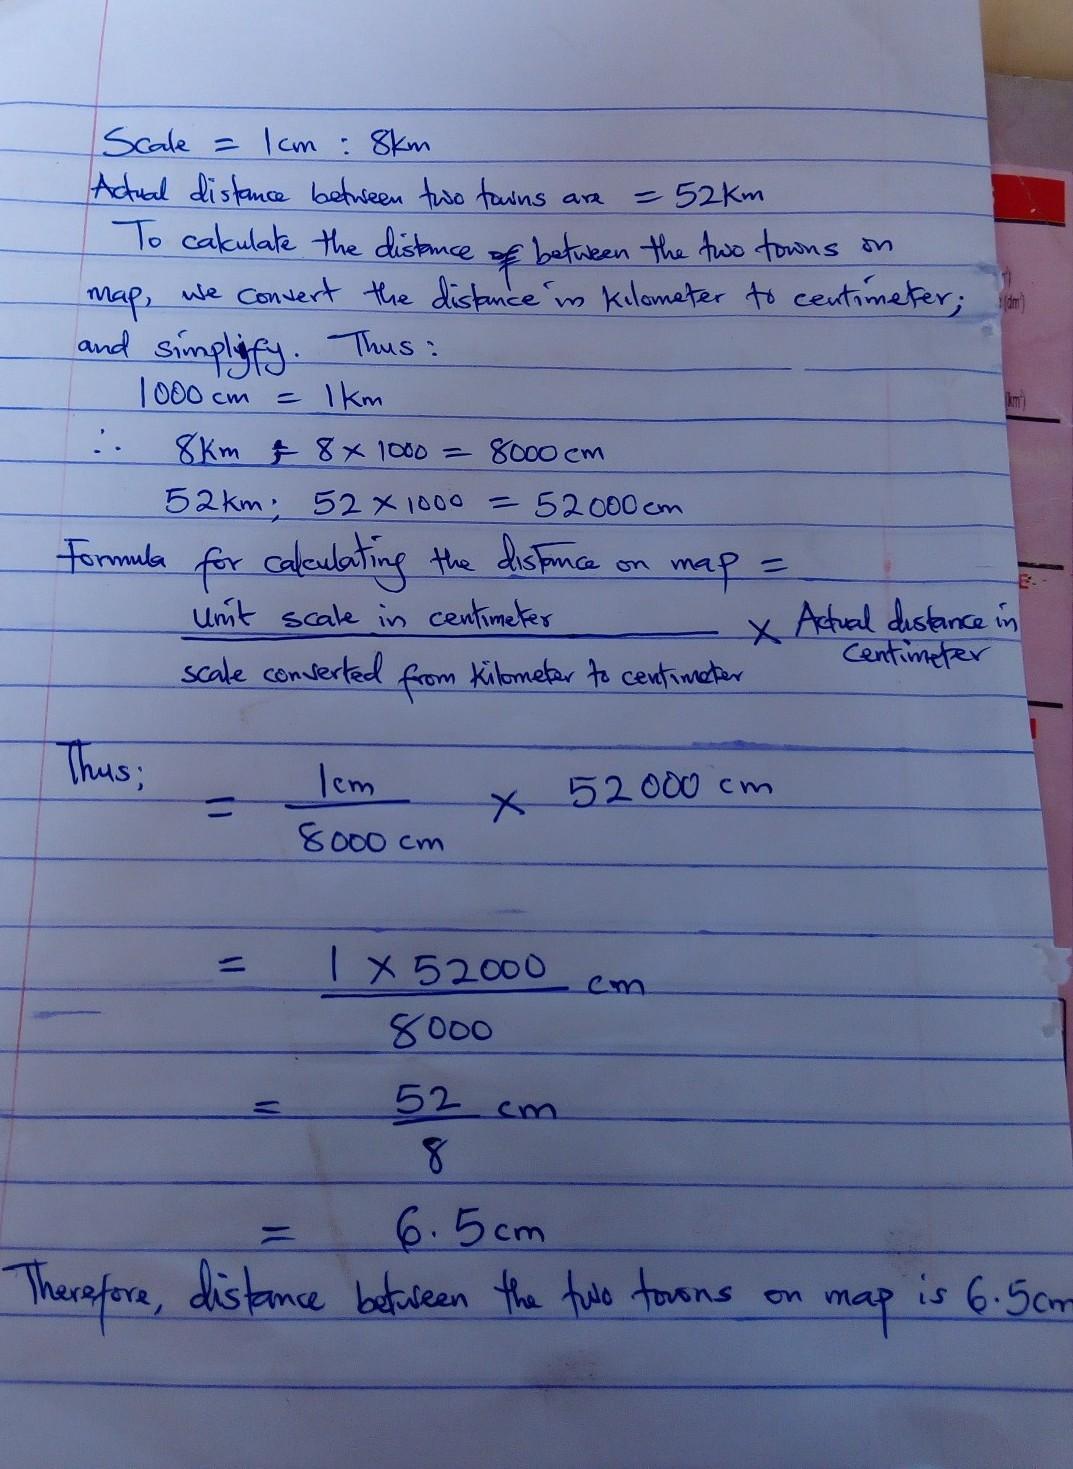 Scale = 1cm : 8km
Actual distance between two towns are = 52Km
To calculate the distance of between the two towns on
map, we convert the distance in kilometer to centimeter;
and simplify. Thus:
1000 cm = 1km
∴ 8Km = 8 × 1000 = 8000cm
52km; 52 × 1000 = 52000cm
Formula for calculating the distance on map =
Unit scale in centimeter
× Actual distance in
centimeter
scale converted from kilometer to centimeter
Thus;
= 1cm
8000 cm
× 52000 cm
= 1 × 52000 cm
8000
= 52 cm
8
= 6.5cm
Therefore, distance between the two towns on map is 6.5cm
(dm³)
(km³)